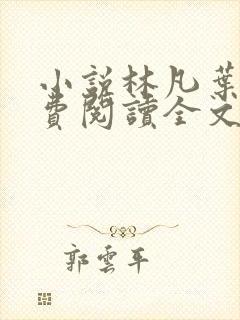 小說林凡葉
費閱讀全文
郭雲平